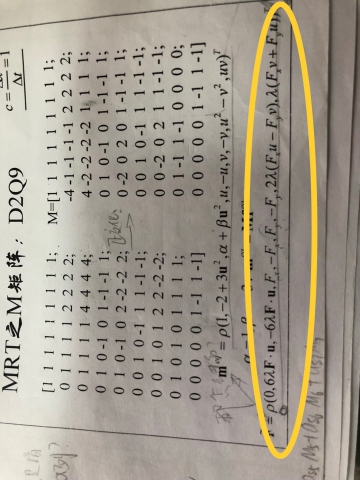 MRT之M矩阵：D2Q9
[1 1 1 1 1 1 1 1 1;
0 1 1 1 1 2 2 2 2;
0 1 1 1 1 4 4 4 4;
0 1 0 -1 0 1 -1 -1 1;
0 1 0 -1 0 2 -2 -2 2;
0 0 1 0 -1 1 1 -1 -1;
0 0 1 0 -1 2 2 -2 -2;
0 1 0 1 0 1 1 1 1;
0 0 0 0 0 1 -1 1 -1]
M=[1 1 1 1 1 1 1 1 1;
-4 -1 -1 -1 -1 2 2 2 2;
4 -2 -2 -2 -2 1 1 1 1;
0 1 0 -1 0 1 -1 -1 1;
0 -2 0 2 0 1 -1 -1 1;
0 0 1 0 -1 1 1 -1 -1;
0 0 -2 0 2 1 1 -1 -1;
0 1 -1 1 -1 0 0 0 0;
0 0 0 0 0 1 -1 1 -1]
= ρ(1,−2+3u²,α+βu²,u,−u,v,−v,u²−v²,uv)ᵀ
= ρ(0,6λF·u,−6λF·u,Fₓ,−Fₓ,Fᵧ,−Fᵧ,2λ(Fₓu−Fᵧv),λ(Fₓv+Fᵧu))ᵀ